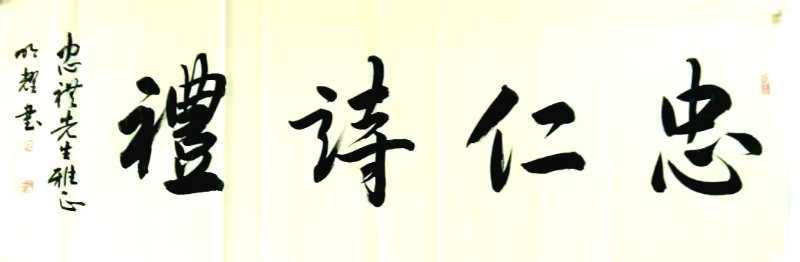 忠仁詩禮
忠禮先生雅正
明耀書